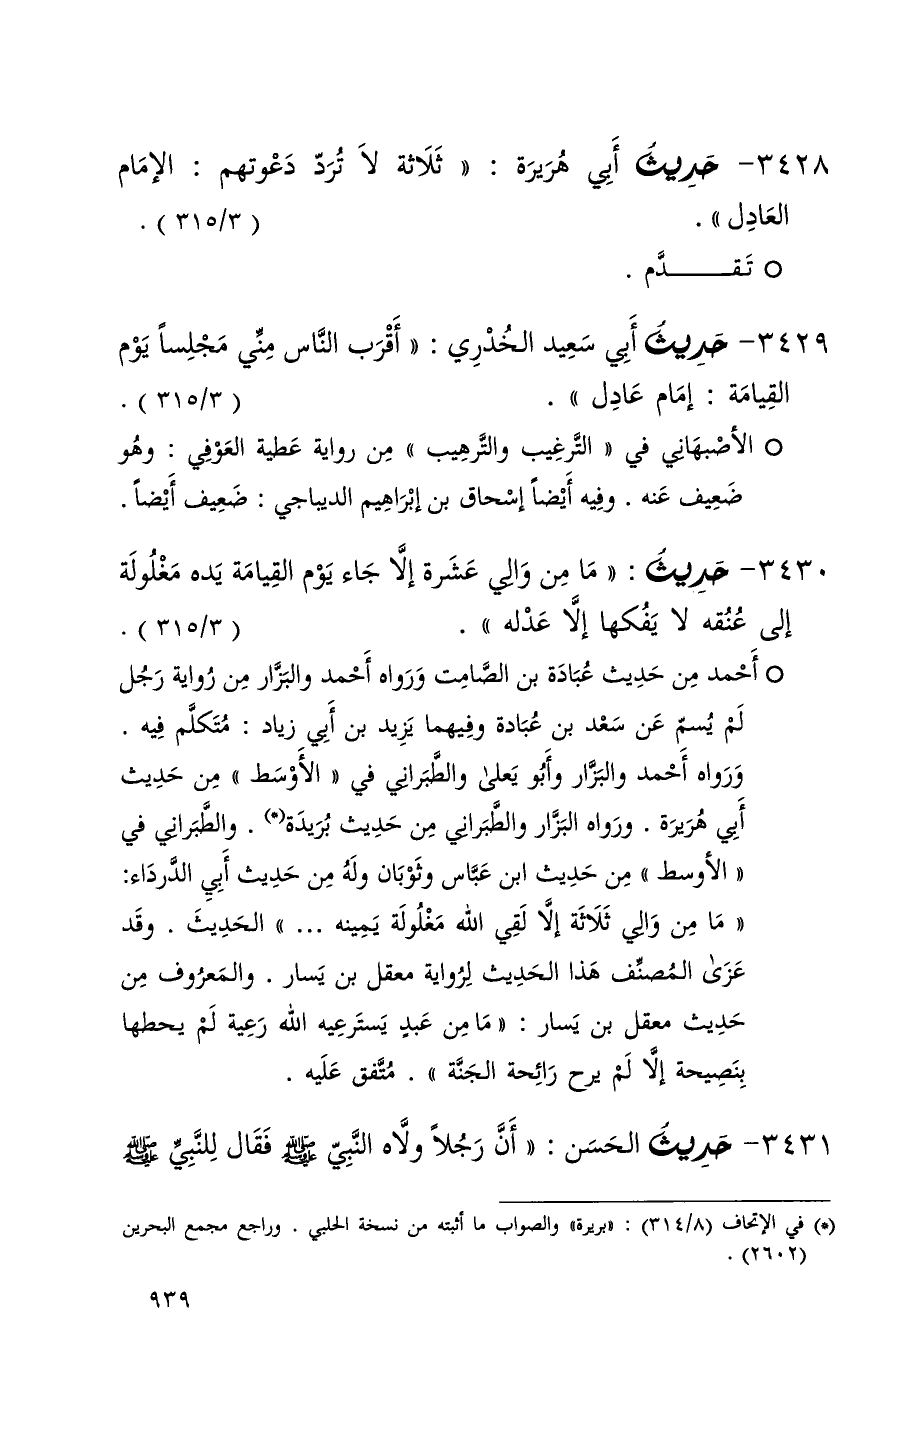 ٣٤٢٨- حَدِيثُ أَبِي هُرَيرَة : « ثَلَاثة لاَ تُرَدّ دَعْوتهم : الإمَام
العَادِل » . ( ٣١٥/٣ ) .
○ تَـقــــــدَّم .
٣٤٢٩- حَدِيثُ أَبِي سَعِيد الخُدْرِي : « أَقْرَب النَّاس مِنِّي مَجْلِساً يَوْم
القِيامَة : إمَام عَادِل » . ( ٣١٥/٣ ) .
○ الأصْبهَانِي في « التَّرغِيب والتَّرهِيب » مِن رواية عَطية العَوْفِي : وهُو
ضَعِيف عَنه . وفِيه أَيْضاً إسْحاق بن إبْرَاهِيم الديباجي : ضَعِيف أَيْضاً .
٣٤٣٠- حَدِيثُ : « مَا مِن وَالِي عَشَرة إلَّا جَاء يَوْم القِيامَة يَده مَغْلُولَة
إلى عُنُقه لا يَفُكها إلَّا عَدْله » . ( ٣١٥/٣ ) .
○ أَحْمد مِن حَدِيث عُبَادَة بن الصَّامِت وَرَواه أَحْمد والبَزَّار مِن رُواية رَجُل
لَمْ يُسمّ عَن سَعْد بن عُبَادة وفِيهما يَزِيد بن أَبِي زياد : مُتَكلَّم فِيه .
وَرَواه أَحْمد والبَزَّار وأَبُو يَعلىٰ والطَّبَراني في « الأَوْسَط » مِن حَدِيث
أَبِي هُرَيرَة . ورَواه البَزَّار والطَّبَرانِي مِن حَدِيث بُرَيدَة(*) . والطَّبَرانِي في
« الأوسط » مِن حَدِيث ابن عَبَّاس وثَوْبَان ولَهُ مِن حَدِيث أَبِي الدَّردَاء:
« مَا مِن وَالِي ثَلَاثَة إلَّا لَقِي الله مَغْلُولَة يَمِينه ... » الحَدِيثَ . وقَد
عَزَىٰ المُصنِّف هَذا الحَدِيث لِرُواية معقل بن يَسار . والمَعرُوف مِن
حَدِيث معقل بن يَسار : « مَا مِن عَبدٍ يَستَرعِيه الله رَعِية لَمْ يحطها
بِنَصِيحة إلَّا لَمْ يرح رَائِحة الجَنَّة » . مُتَّفق عَلَيه .
٣٤٣١- حَدِيثُ الحَسَن : « أَنَّ رَجُلاً ولَّاه النَّبِيّ ﷺ فَقَال لِلنَّبِيِّ ﷺ
(*) في الإتحاف (٣١٤/٨) : «بريرة» والصواب ما أثبته من نسخة الحلبي . وراجع مجمع البحرين
(٢٦٠٢) .
٩٣٩